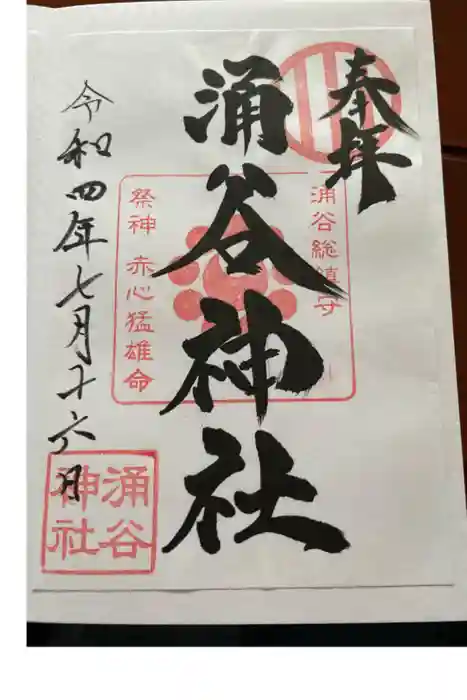 奉拝
涌谷神社
涌谷総鎮守
祭神 赤心猛雄命
令和四年七月十六日
涌谷
神社